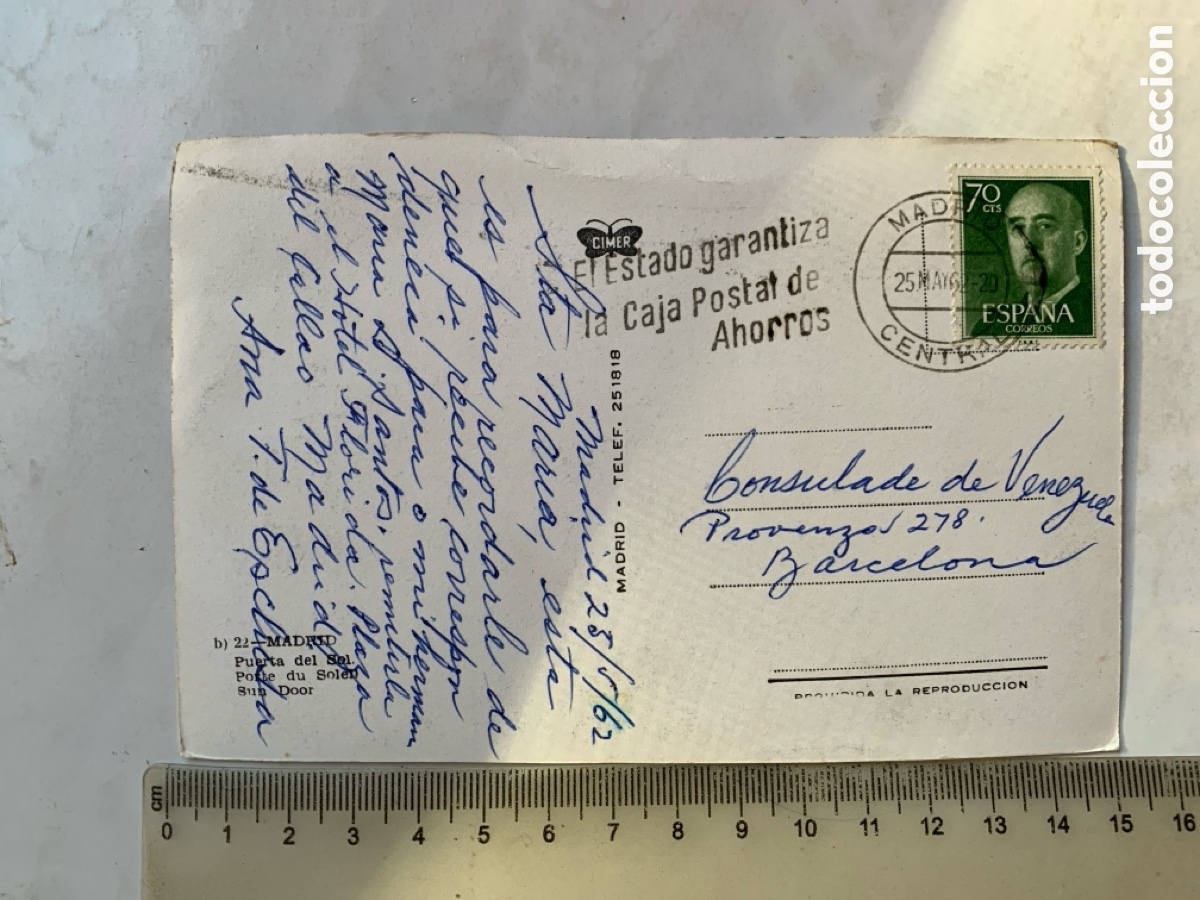 Madrid 25/5/62
Sta María, esta
es para recordarle de
que si recibe correspon
dencia para o mi herman
Maria D'Santos, remitirla
a el Hotel Florida. Plaza
del Callao Madrid
Ana F. de
CIMER
MADRID - TELEF. 251818
El Estado garantiza
la Caja Postal de
Ahorros
MADRID
25 MAY 62-20
CENTRAL
70
CTS
ESPAÑA
CORREOS
Consulade de Venezuela
Provenza 278.
Barcelona
b) 22—MADRID
Puerta del Sol.
Porte du Soleil
Sun Door
PROHIBIDA LA REPRODUCCION
cm
0 1 2 3 4 5 6 7 8 9 10 11 12 13 14 15 16
todocoleccion